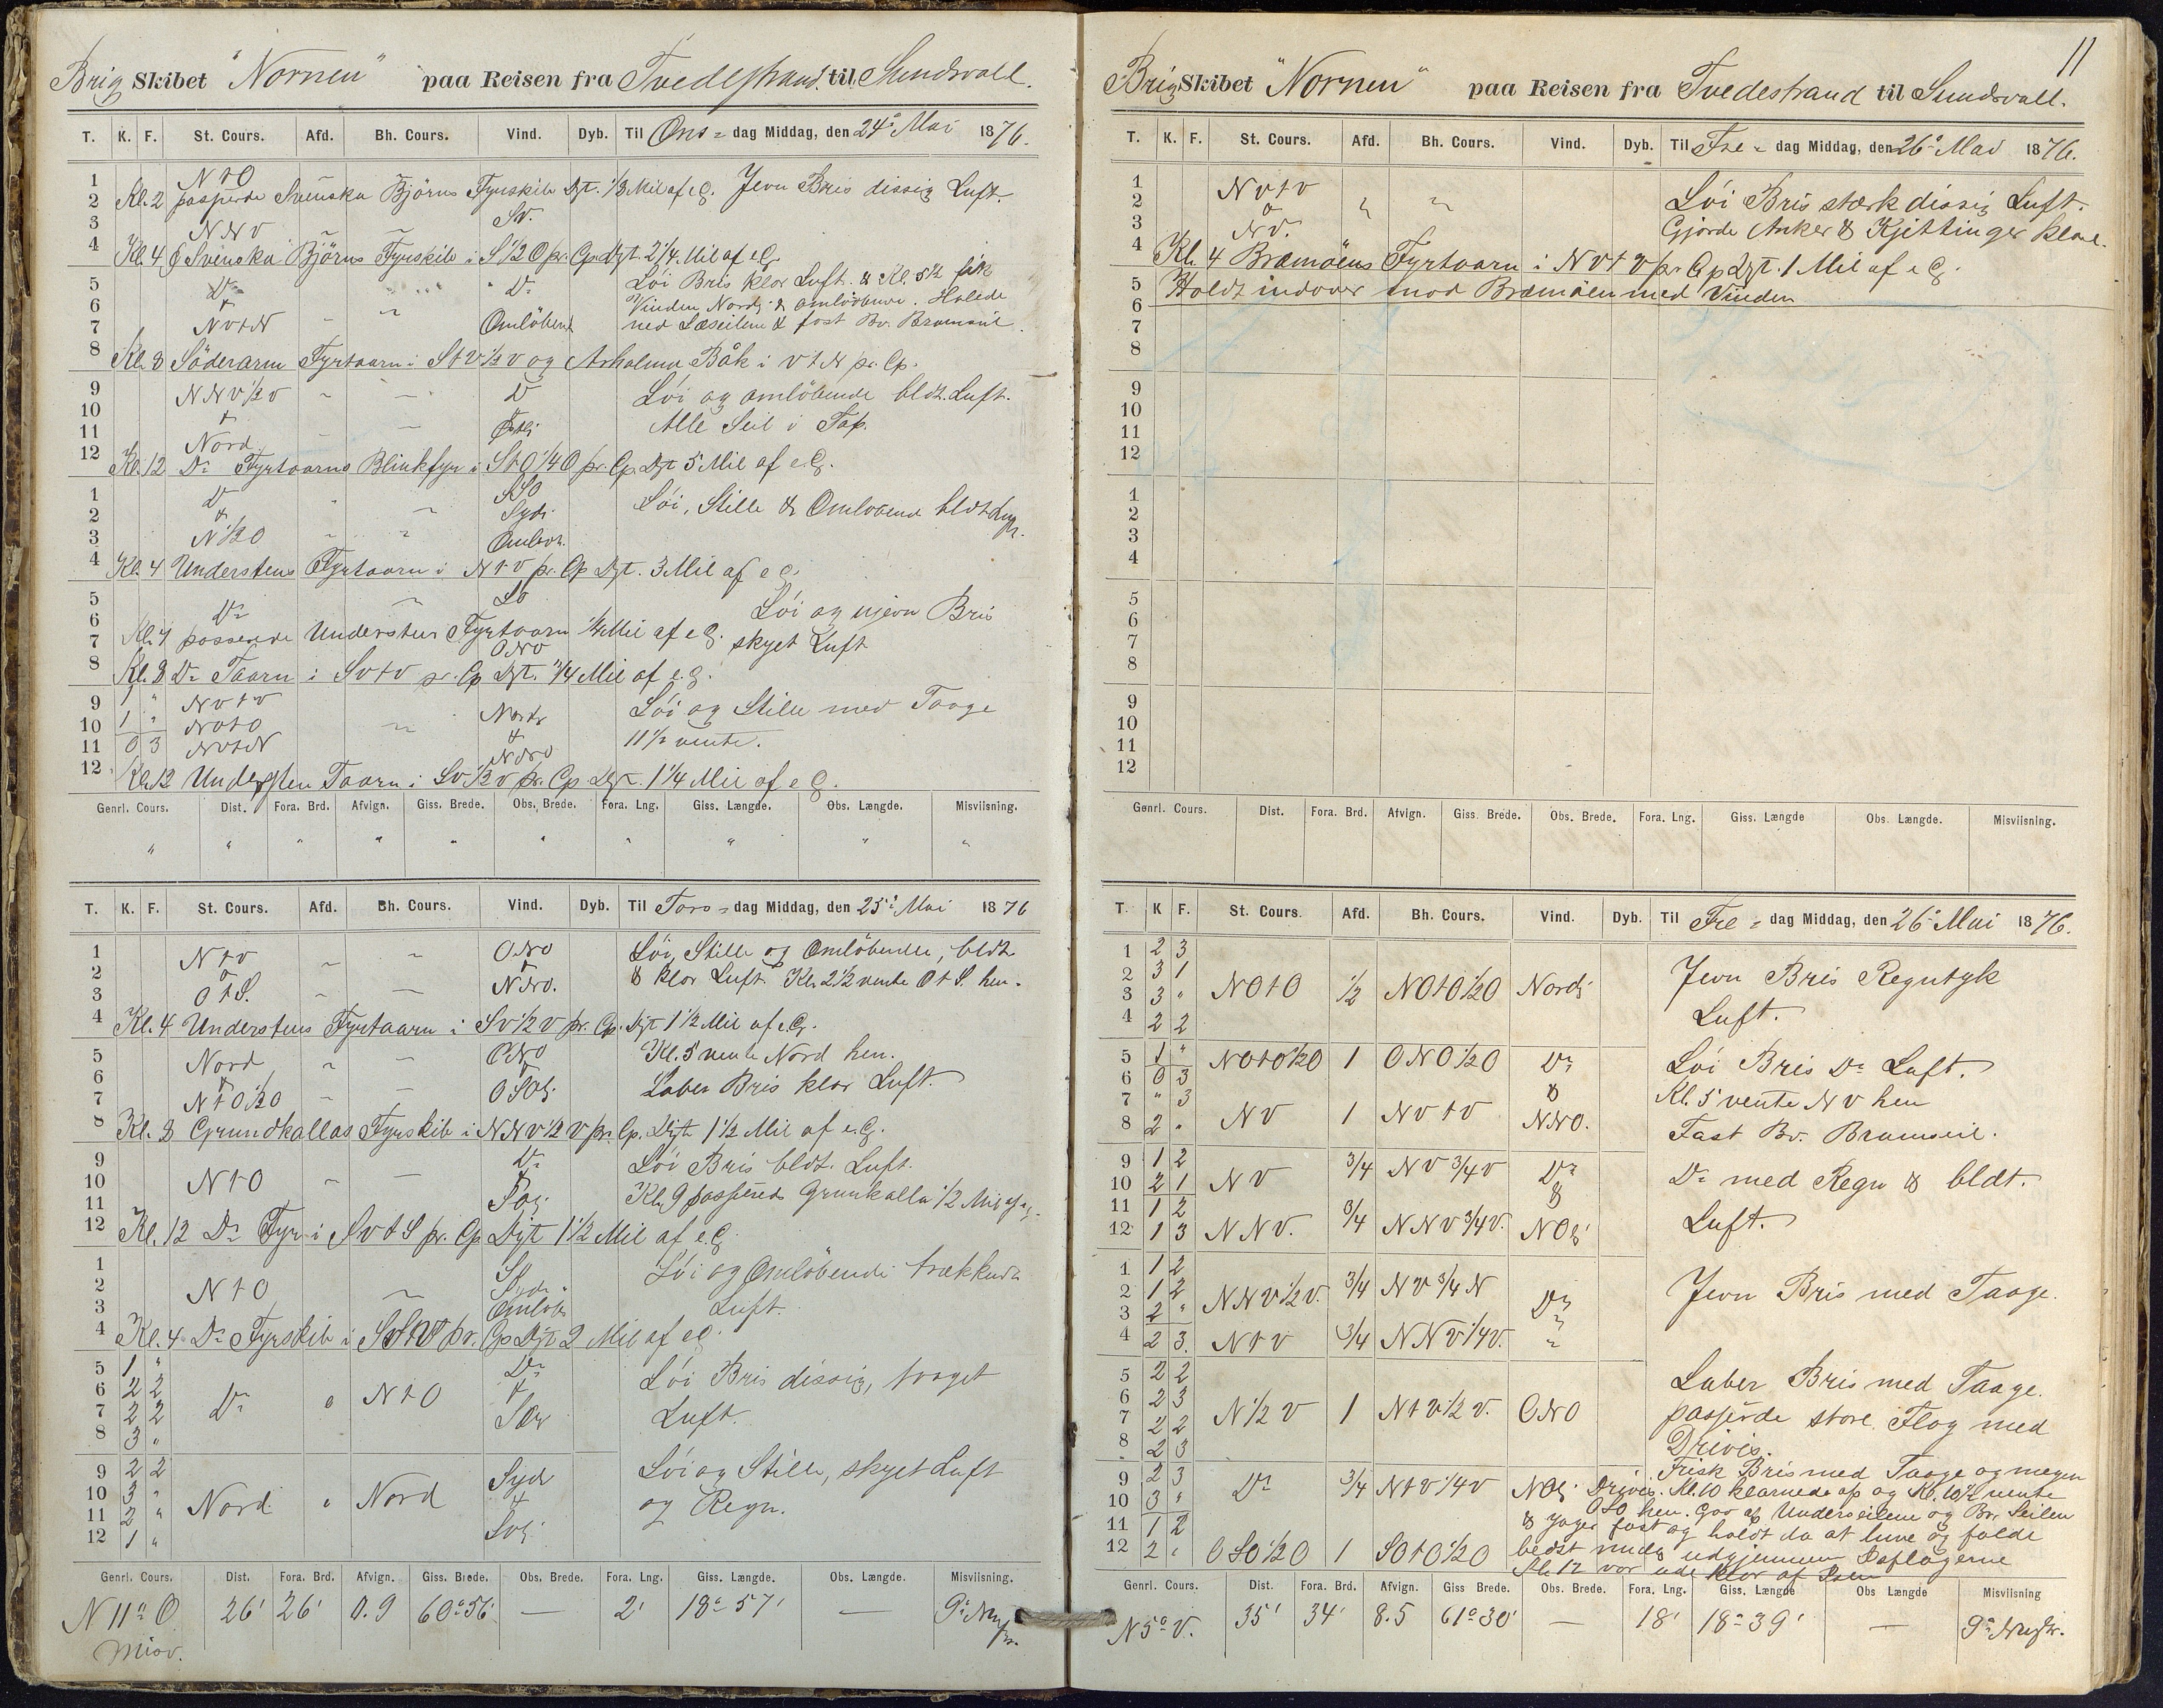 Brig Skibet "Nornen" paa Reisen fra Tvedestrand til Sundsvall.
T. K. F. St. Cours. Afd. Bh. Cours. Vind. Dyb. Til Ons = dag Middag, den 24de Mai 1876.
1 N t O
2 Kl. 2 passerde Svenska Björns Fyrskib Dst. 1/3 Mil af e.G. Jevn Bris dissig Luft.
3 NNV SV.
4 Kl. 4 Svenska Björns Fyrskib i S 1/2 O pr. Cp. Dgt. 2 1/4 Mil af e.G.
5 Do " Do Löi Bris klar Luft. & Kl. 5 1/2 fik
6 & Vinden Nordj & omlöbene. Halede
7 NVtN Omlöbend ned Læseilene & fast Bv. Bramseil.
8 Kl. 8 Söderarm Fyrtaarn i StV 1/2 V og Arholma Båk i VtN pr. Cp.
9 NNV 1/2 V Do Löi og omlöbende bldt. Luft.
10 &
11 Nord Østlj Alle Seil i Top.
12 Kl. 12 Do Fyrtaarns Blinkfyr i StO 1/4 O pr. Cp. Dgt 5 Mil af e.G.
1 Do SSO
2 & Sydj. Löi, Stille & Omlöbend bldt Luft.
3 N 1/2 O Omlöb.
4 Kl. 4 Understens Fyrtaarn i NtV pr. Cp Dgt. 3 Mil af e.G.
5 SO Löi og ujevn Bris
6 Do
7 passerede Understens Fyrtaarn 1/4 Mil af e.G. skyet Luft
ONO
8 Kl. 8 Do Taarn i SVtV pr. Cp Dgt. 1/4 Mil af e.G.
9 1 " NVtV Nordj Löi og Stille med Taage
10 1 " NOtO &
11 0 3 NOtN NNO 11 1/2 vente.
12 Kl. 12 Understen Taarn i SV 1/2 V pr. Cp Dgt. 1 1/4 Mil af e.G.
Genrl. Cours. Dist. Fora. Brd. Afvign. Giss. Brede. Obs. Brede. Fora. Lng. Giss. Længde. Obs. Længde. Misviisning.
" " " " " " " " " "
T. K. F. St. Cours. Afd. Bh. Cours. Vind. Dyb. Til Tors = dag Middag, den 25de Mai 1876
1 NtV ONO Löi, Stille og Omlöbende, bldt
2 & & & klar Luft. Kl. 2 1/2 vente OtS. hen.
3 OtS. NNO.
4 Kl. 4 Understens Fyrtaarn i SV 1/2 V pr. Cp. Dgt 1 1/2 Mil af e.G.
5 Nord ONO Kl. 5 vente Nord hen.
6 & &
7 NtO 1/2 O OSOj. Laber Bris klar Luft.
8 Kl. 8 Grundkallas Fyrskib i NNV 1/2 V pr. Cp. Dgt 1 1/2 Mil af e.G.
9 Do Löi Bris bldt. Luft.
10 NtO
11 Kl. 9 passered Grunkalla 1/2 Mil af e.G.
12 Kl. 12 Do Fyr i SVtS pr. Cp Dgt 1 1/2 Mil af e.G
1 S Löi og Omlöbende trækkende
2 NtO Sydj
3 Omlöb Luft.
4 Kl. 4 Do Fyrskib i pr. Cp Dgt 2 Mil af e.G.
5 1 " Do Löi Bris dissig, taaget
6 2 2 Do " NtO &
7 2 2 Luft.
8 3 "
9 2 2 Sydj Löi og Stille, skyet Luft
10 3 " Nord " Nord &
11 2 " og Regn.
12 1 "
Genrl. Cours. Dist. Fora. Brd. Afvign. Giss. Brede. Obs. Brede. Fora. Lng. Giss. Længde. Obs. Længde. Misviisning.
N 11° O 26' 26' 0.9 60° 56' — 2' 18° 57' — 9°
Misv.
11
Brig Skibet "Nornen" paa Reisen fra Tvedestrand til Sundsvall.
T. K. F. St. Cours. Afd. Bh. Cours. Vind. Dyb. Til Fre = dag Middag, den 26de Mai 1876.
1 NVtV Löi Bris stærk dissig Luft.
2 &
3 NV. Gjorde Anker & Kjettinger klar.
4 Kl. 4 Bremöens Fyrtaarn i NVtV pr. Cp Dgt. 1 Mil af e.G.
5 Holdt indover mod Bremöen med Vinden
6
7
8
9
10
11
12
1
2
3
4
5
6
7
8
9
10
11
12
Genrl. Cours. Dist. Fora. Brd. Afvign. Giss. Brede. Obs. Brede. Fora. Lng. Giss. Længde Obs. Længde. Misviisning.
T. K F. St. Cours. Afd. Bh. Cours. Vind. Dyb. Til Fre = dag Middag, den 26de Mai 1876.
1 2 3
2 3 1 Jevn Bris Regntyk
3 3 " NOtO 1/2 NOtO 1/2 O Nordj
4 2 2 Luft.
5 1 " NOtO 1/2 O 1 ONO 1/2 O Do Löi Bris Do Luft.
6 0 3 &
7 " 3 Kl. 5 vente NV hen
8 2 " NV 1 NVtV NNO. Fast Bv. Bramseil.
9 1 2
10 2 1 NV 3/4 NV 3/4 V Do Do med Regn & bldt.
11 1 2 &
12 1 3 NNV. 3/4 NNV 3/4 V. NOj Luft.
1 1 2
2 1 2 NNV 1/2 V. 3/4 NV 3/4 N Do Jevn Bris med Taage.
3 2 "
4 2 3. NtV 3/4 NNV 1/4 V. "
5 2 2
6 2 3 Laber Bris med Taage.
7 2 2 N 1/2 V 1 NtV 1/2 V. ONO passerde store Flag med
8 2 3 Drivis.
9 2 3 Frisk Bris med Taage og megen
10 3 " Do 3/4 NtV 1/4 V NOj Drivis. Kl. 10 klarnede op og Kl. 10 1/2 vente
OSO hen. Underseilene og Br. Seilen
11 1 2 & Jager fast og holdt da at luve og falde
12 2 " OSO 1/2 O 1 SOtO 1/2 O bedst udgjennem Isflagerne
Kl. 12 var ude klar af Isen
Genrl. Cours. Dist. Fora. Brd. Afvign. Giss Brede. Obs. Brede. Fora. Lng. Giss. Længde Obs Længde Misviisning
N 5° V. 35' 34' 8.5 61° 30' — 18' 18° 39' — 9°